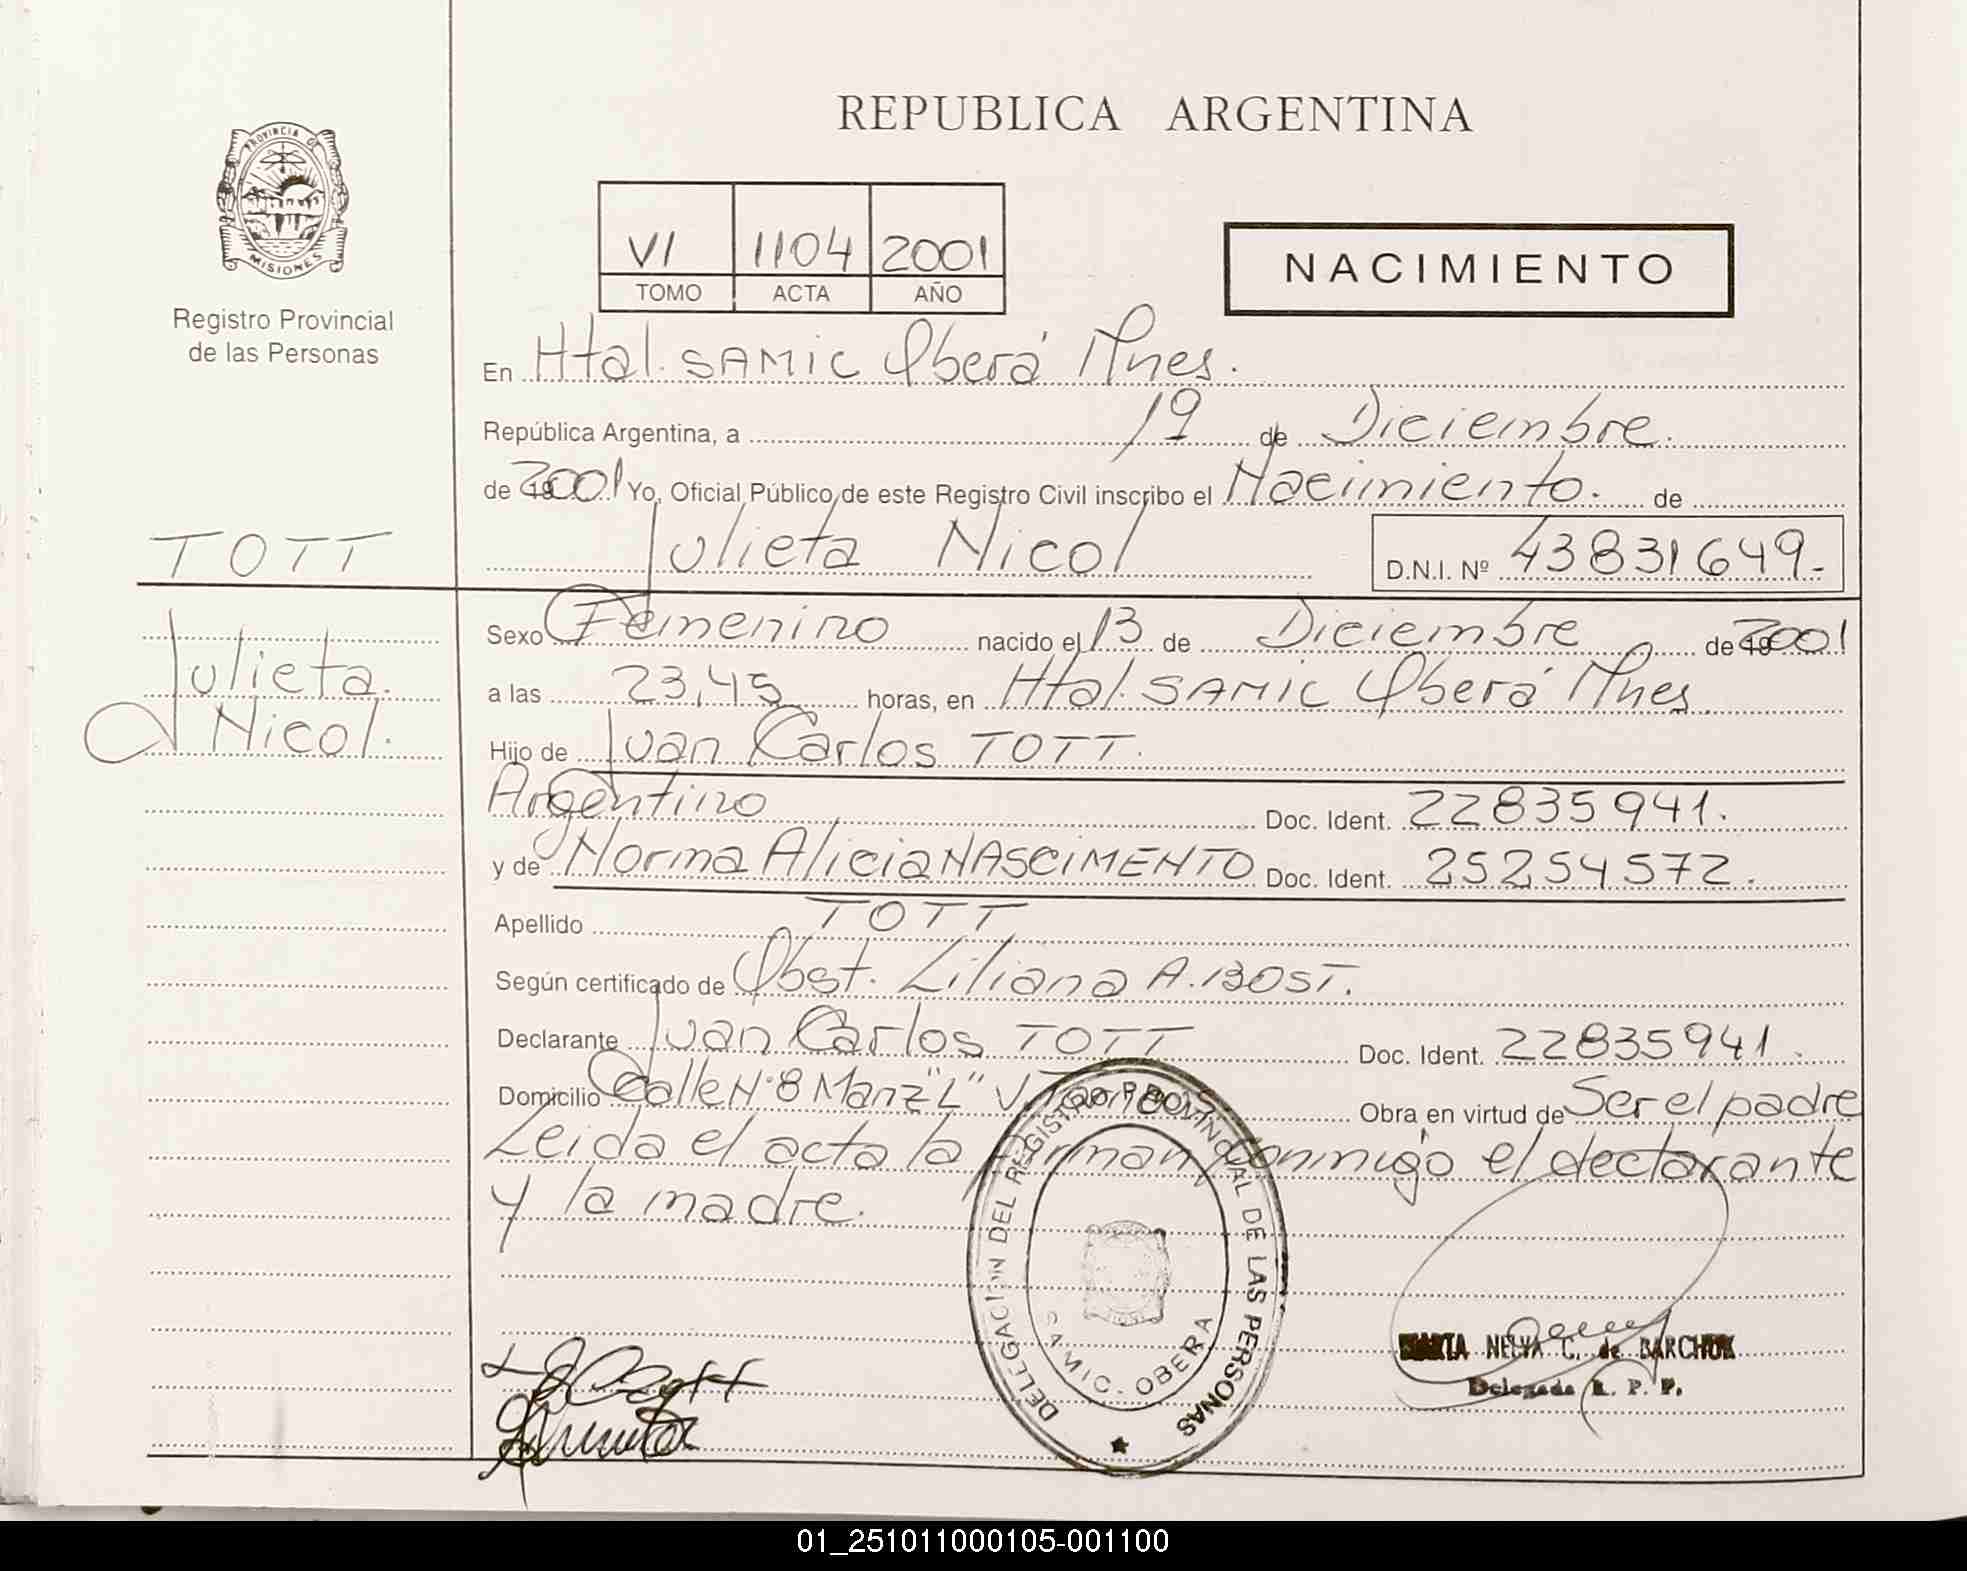 REPUBLICA ARGENTINA
PROVINCIA DE
MISIONES
Registro Provincial
de las Personas
VI 1104 2001
TOMO ACTA AÑO
NACIMIENTO
En Htal. SAMIC Oberá Mnes.
República Argentina, a 19 de Diciembre.
de 2001 Yo, Oficial Público de este Registro Civil inscribo el Nacimiento. de
Julieta Nicol D.N.I. Nº 43831649.-
TOTT
Julieta.
Nicol.
Sexo Femenino nacido el 13 de Diciembre de 2001
a las 23,45 horas, en Htal. SAMIC Oberá Mnes.
Hijo de Juan Carlos TOTT.
Argentino Doc. Ident. 22835941.
y de Norma Alicia NASCIMENTO Doc. Ident. 25254572.
Apellido TOTT
Según certificado de Obst. Liliana A. BOST.
Declarante Juan Carlos TOTT Doc. Ident. 22835941.
Domicilio Calle Nº 8 Manz "L" V. Obra en virtud de Ser el padre
Leida el acta la firman conmigo el declarante
y la madre.
DELEGACION DEL REGISTRO PROVINCIAL DE LAS PERSONAS
SAMIC - OBERA
MARTA NELVA C. de BARCHUK
Delegada R. P. P.
01_251011000105-001100